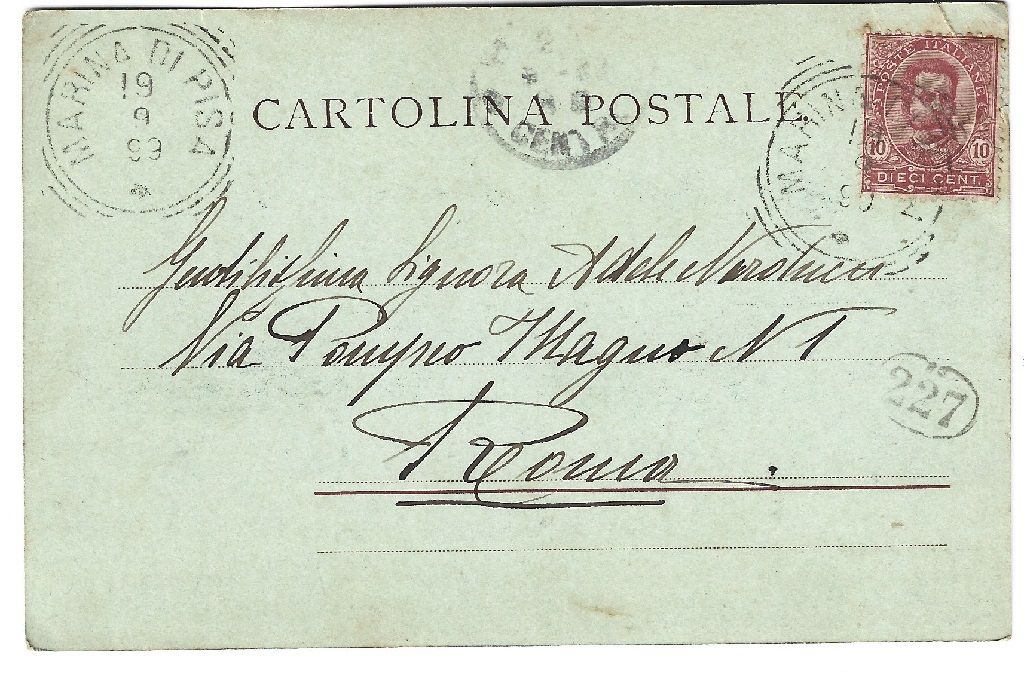 MARINA DI PISA
19
9
99
CARTOLINA POSTALE
CENT
POSTE ITALIANE
10 10
DIECI CENT.
MARINA
Gentilissima Signora Adele
Via Pompeo Magno N 1
Roma
227